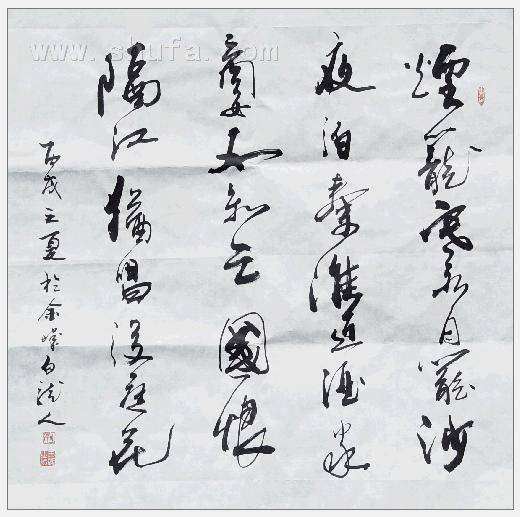 www.shufa.com
煙籠寒水月籠沙
夜泊秦淮近酒家
商女不知亡國恨
隔江猶唱後庭花
丙戌之夏於金